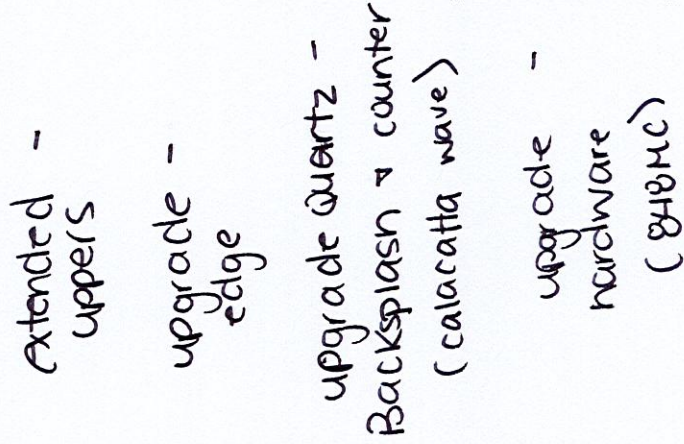 extended -
uppers
upgrade -
edge
upgrade Quartz -
Backsplash & counter
(calacatta wave)
upgrade -
hardware
(848MC)